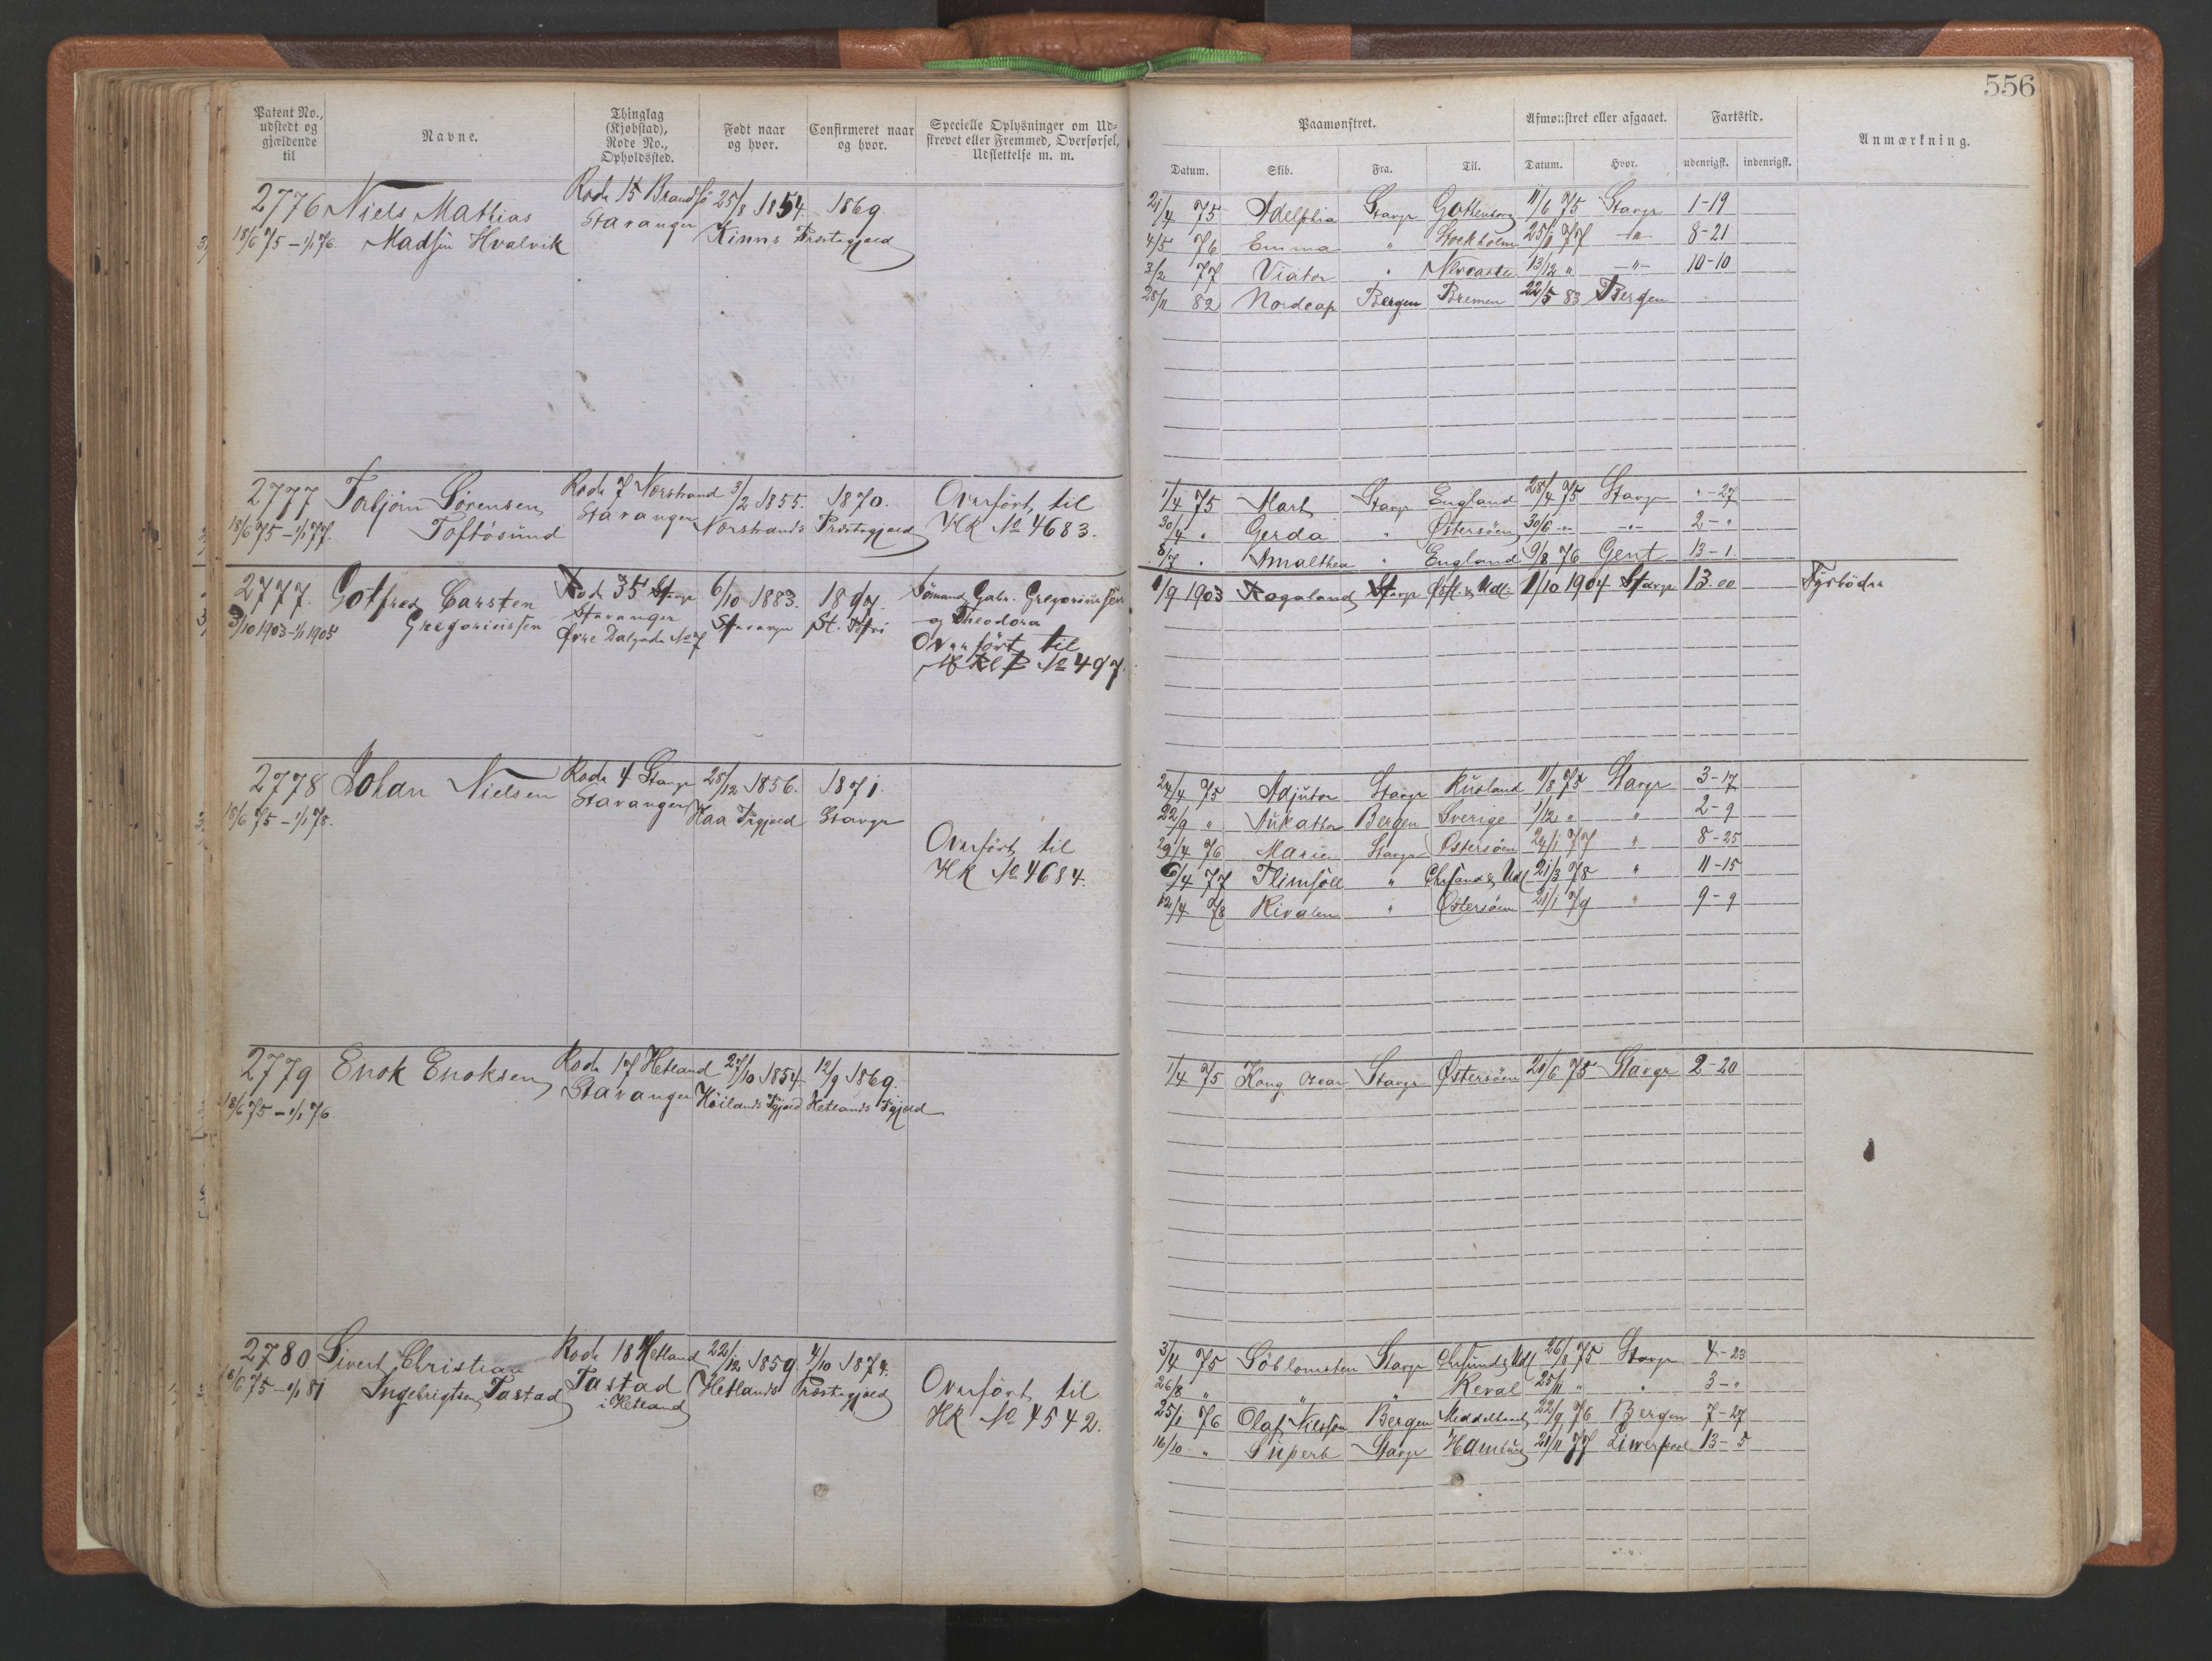 556
Patent No., udstedt og gjældende til
Navne.
Thinglag (Kjøbstad), Rode No., Opholdssted.
Født naar og hvor.
Confirmeret naar og hvor.
Specielle Oplysninger om Udskrevet eller Fremmed, Overførsel, Udslettelse m. m.
Paamønstret.
Afmønstret eller afgaaet.
Fartstid.
Anmærkning.
Datum. Skib. Fra. Til. Datum. Hvor. udenrigsk. indenrigsk.
2776 Niels Mathias Rode 15 Brandsö 25/8 1854. 1869.
18/6 75 - 1/1 76. Madsen Hvalvik Stavanger Kinns Præstegjæld
21/4 75 Adelphia Stavgr Gottenborg 11/6 75 Stavgr 1-19
4/5 76 Emma " Stockholm 25/1 77 -"- 8-21
3/2 77 Viator " Newcastle 13/12 " -"- 10-10
28/11 82 Nordcap Bergen Bremen 22/5 83 Bergen
2777 Torbjörn Sörensen Rode 7 Norstrand 3/2 1855. 1870. Overfört til
18/6 75 - 1/1 77. Toftösund Stavanger Norstrands Præstegjæld HR No 4683.
1/4 75 Mart Stavgr England 28/4 75 Stavgr "-27
30/4 " Gerda " Østersöen 30/6 -"- -"- 2-"
8/7 " Amalthea " England 9/8 76 Gent 13-1
2777. Gotfred Carsten Rode 35 Stavgr 6/10 1883. 1897. Sömand Gabr. Gregoriussen
3/10 1903 - 1/1 1905 Gregoriussen Stavanger Stavanger St. Petri og Theodora
Øvre Dalgade No 7 Overfört til
No 497.
1/9 1903 Rogaland Stavgr Østl. & Udl. 1/10 1904 Stavgr 13.00 Fyrböder
2778 Johan Nielsen Rode 4 Stavgr 28/12 1856. 1871.
18/6 75 - 1/1 78. Stavanger Haa Prgjæld Stavgr
Overfört til
HR No 4684.
24/4 75 Adjutor Stavgr Rusland 11/8 75 Stavgr 3-17
22/9 " Bergen Sverige 1/12 " " 2-9
29/4 76 Marie Stavgr Østersöen 24/1 77 " 8-25
6/4 77 Plimsoll " Chrsand & Udl 21/3 78 " 11-15
12/4 78 Rivalen " Østersöen 21/1 79 " 9-9
2779 Enok Enoksen Rode 17 Hetland 27/10 1854. 12/9 1869.
18/6 75 - 1/1 76 Stavanger Höilands Pgjæld Hetlands Pgjæld
1/4 75 Kong Oscar Stavgr Østersöen 21/6 75 Stavgr 2-20
2780 Sivert Christian Rode 18 Hetland 22/12 1859. 4/10 1874.
18/6 75 - 1/1 81 Ingebrigtsen Tastad Tastad i Hetland Hetlands Præstegjæld
Overfört til
HR No 4542.
3/4 75 Söblomsten Stavgr Chrsund & Udl 26/8 75 Stavgr 4-23
26/8 " " " Reval 25/11 " " 3-"
25/1 76 Olaf Nielsen Bergen Middelhavet 22/9 76 Bergen 7-27
16/10 " Superb Stavgr Hamburg 21/11 77 Liverpool 13-5